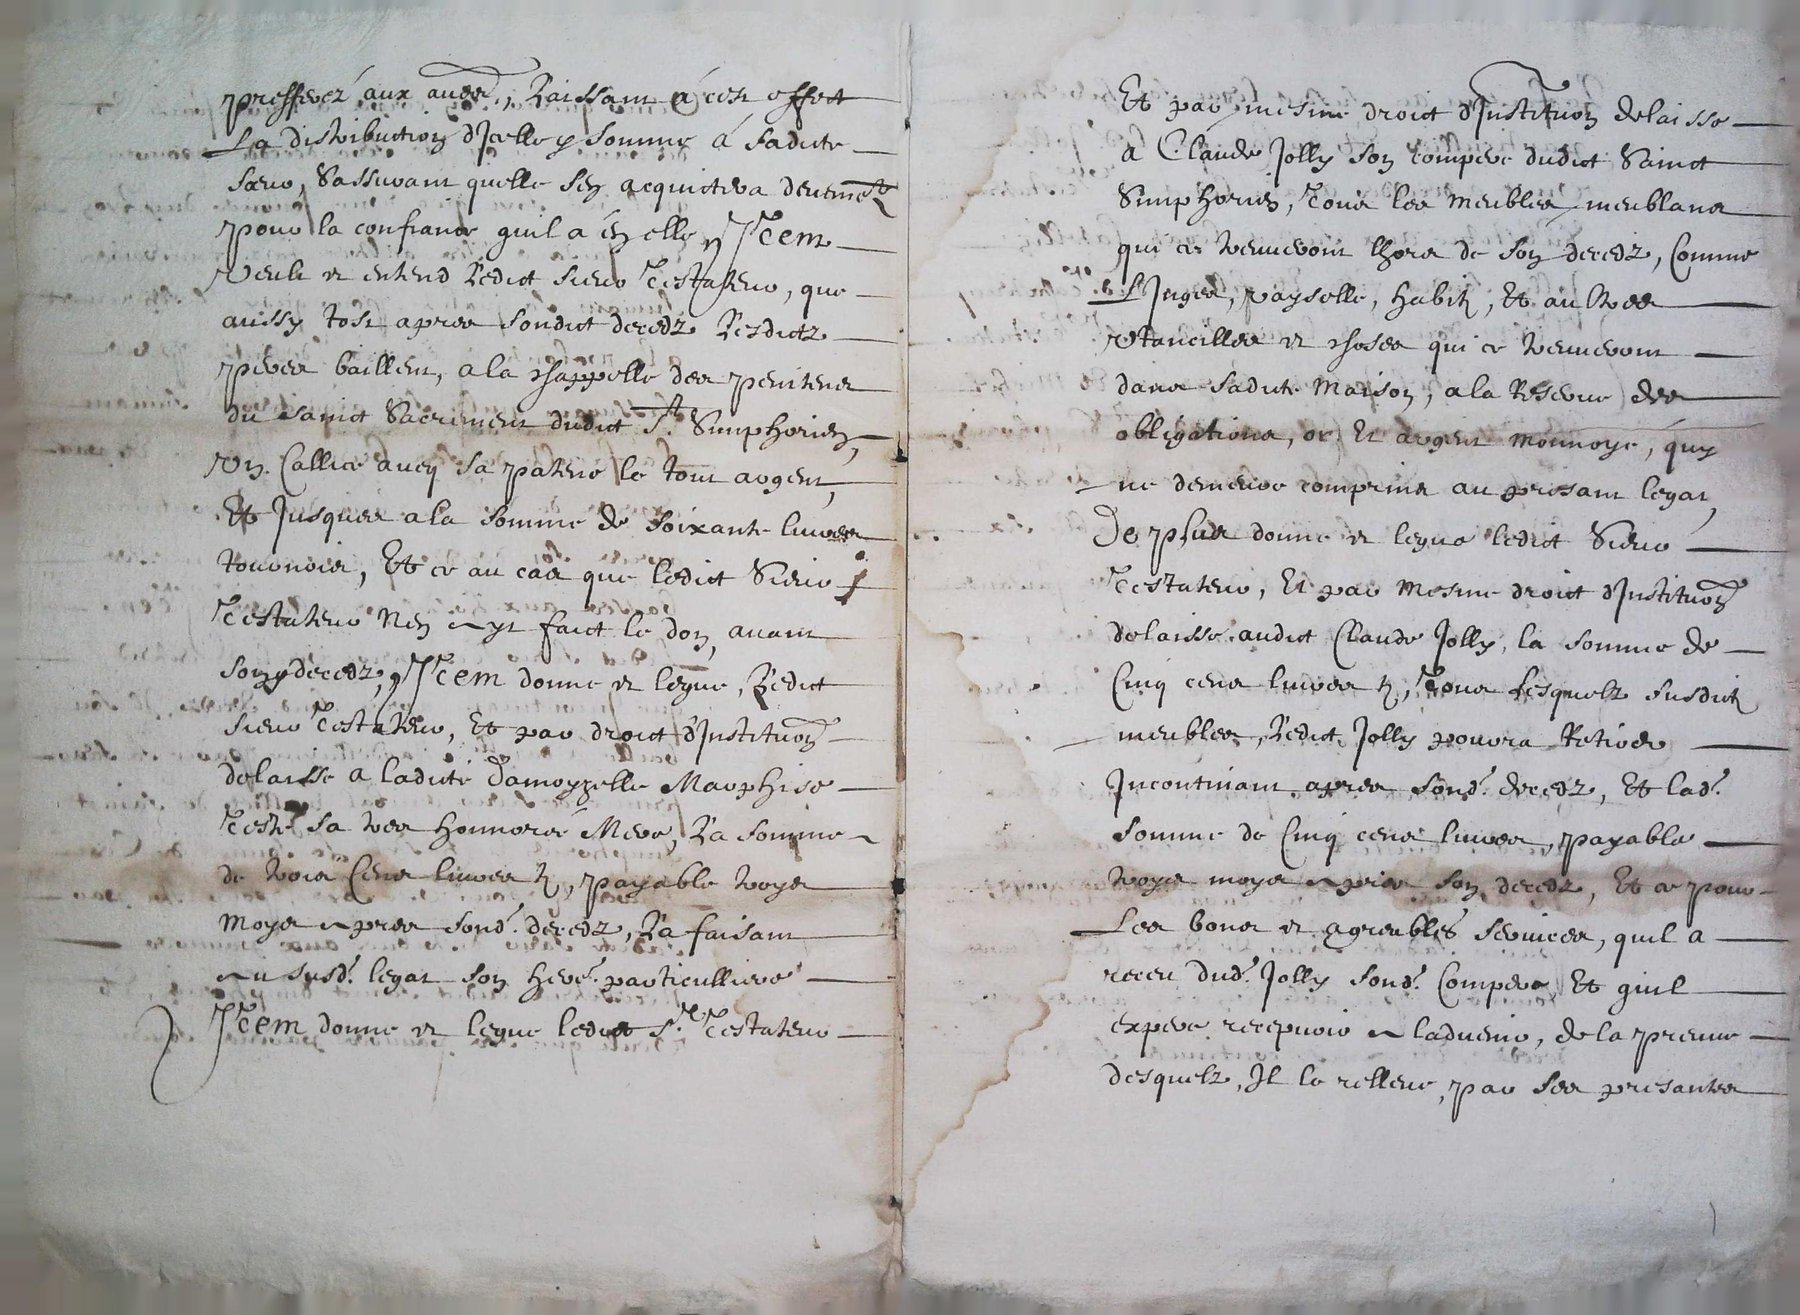 prefferez aux autres, Laissant a cest effect
La distribution d'Icelle somme á sadicte
sœur, Sassurant quelle sen acquictera deuement
pour la confiance quil a en elle, Item
Veult et entend Ledict sieur Testateur, que
aussy tost apres sondict decedz Lesdictz
peres baillent, a la chappelle des penitens
du sainct Sacrement dudict St. Simphorien,
Vn Callice aueq sa patene le tout argent,
Et Jusques a la somme de soixante liures
tournois, Et ce au cas que ledict Sieur
Testateur Nen ayt faict le don, auant
son decedz, Item donne et legue, Ledict
sieur Testateur, Et par droict d'Institution
delaisse a ladicte Damoyzelle Marphise
Teste sa tres honnorée Mere, La somme
de trois Cens liures tz, payable troys
Moys apres sond. decedz, La faisant
au susd. legat son here. particulliere
Item donne et legue ledict Sr. Testateur
Et par mesme droict d'Institution delaisse
a Claude Jolly son compere dudict Sainct
Simphorien, Tous les meubles meublans
qui ce treuueront lhors de son decedz, Comme
Linges, vayselle, habitz, Et aultres
Vtancilles et choses qui ce treuueront
dans sadicte Maison, a la Reserue des
obligations, or Et argent monnoye, quy
ne demeure comprins au presant legat,
De plus donne et legue ledict Sieur
Testateur, Et par mesme droict d'Institution
delaisse audict Claude Jolly, la somme de
Cinq cens liures tz, Tous Lesquelz susdictz
meubles, Ledict Jolly pourra Retirer
Incontinant apres sond. decedz, Et lad.
somme de Cinq cens liures, payable
troys moys apres son decedz, Et ce pour
Les bons et agreables seruices, quil a
receu dud. Jolly sond. Compere Et quil
expere recepuoir a laduenir, de la preuue
desquelz, Il le relleue, par ses presantes